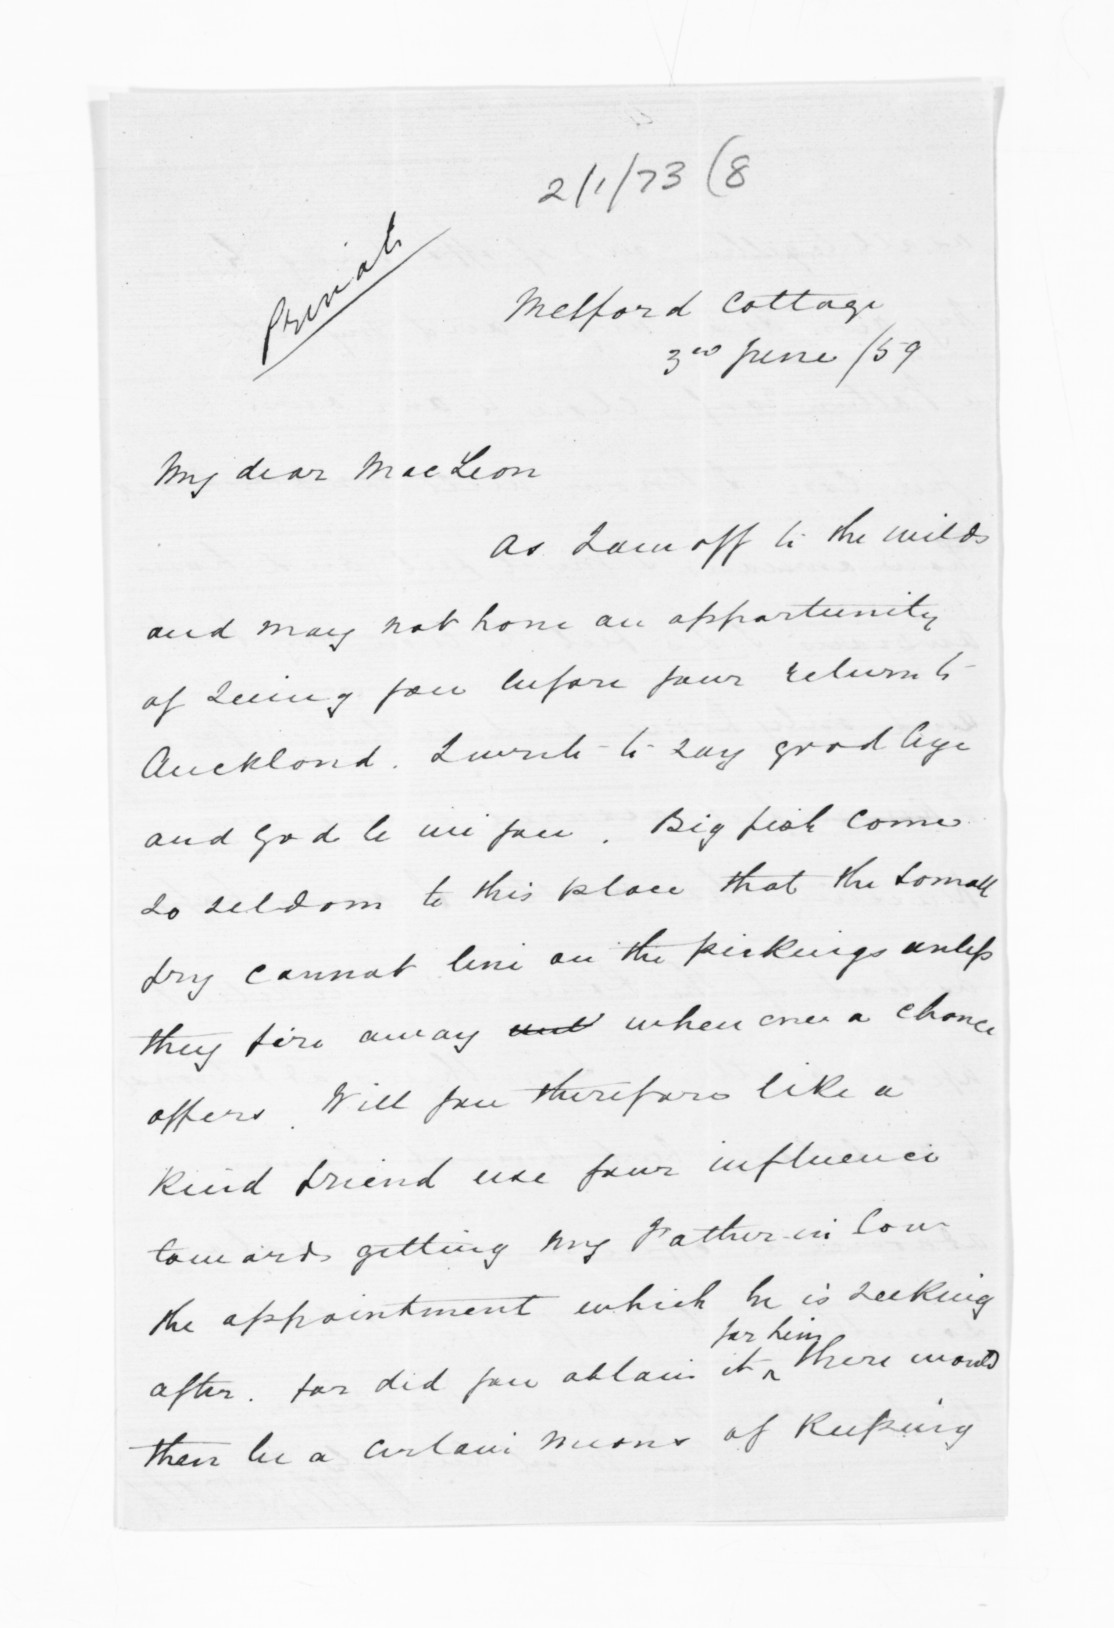 2/1/73 (8
Private
Melford Cottage
3rd June /59
My dear MacLean
As I am off to the wilds
and may not have an opportunity
of seeing you before your return to
Auckland. I write to say good bye
and God be wi you. Big fish come
so seldom to this place that the small
fry cannot live on the pickings unless
they fire away when ever a chance
offers. Will you therefore like a
kind friend use your influence
towards getting my Father-in law
the appointment which he is seeking
for him
after. for did you obtain it ^ there would
then be a certain means of keeping